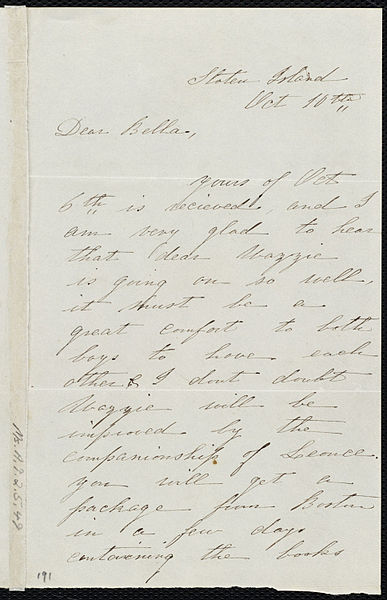 Staten Island
Oct 10th
Dear Bella,
yours of Oct
6th is recieved, and I
am very glad to hear
that dear Wazzie
is going on so well,
it must be a
great comfort to both
boys to have each
other & I dont doubt
Wazzie will be
improved by the
companionship of Leonce.
you will get a
package from Boston
in a few days
containing the books
191